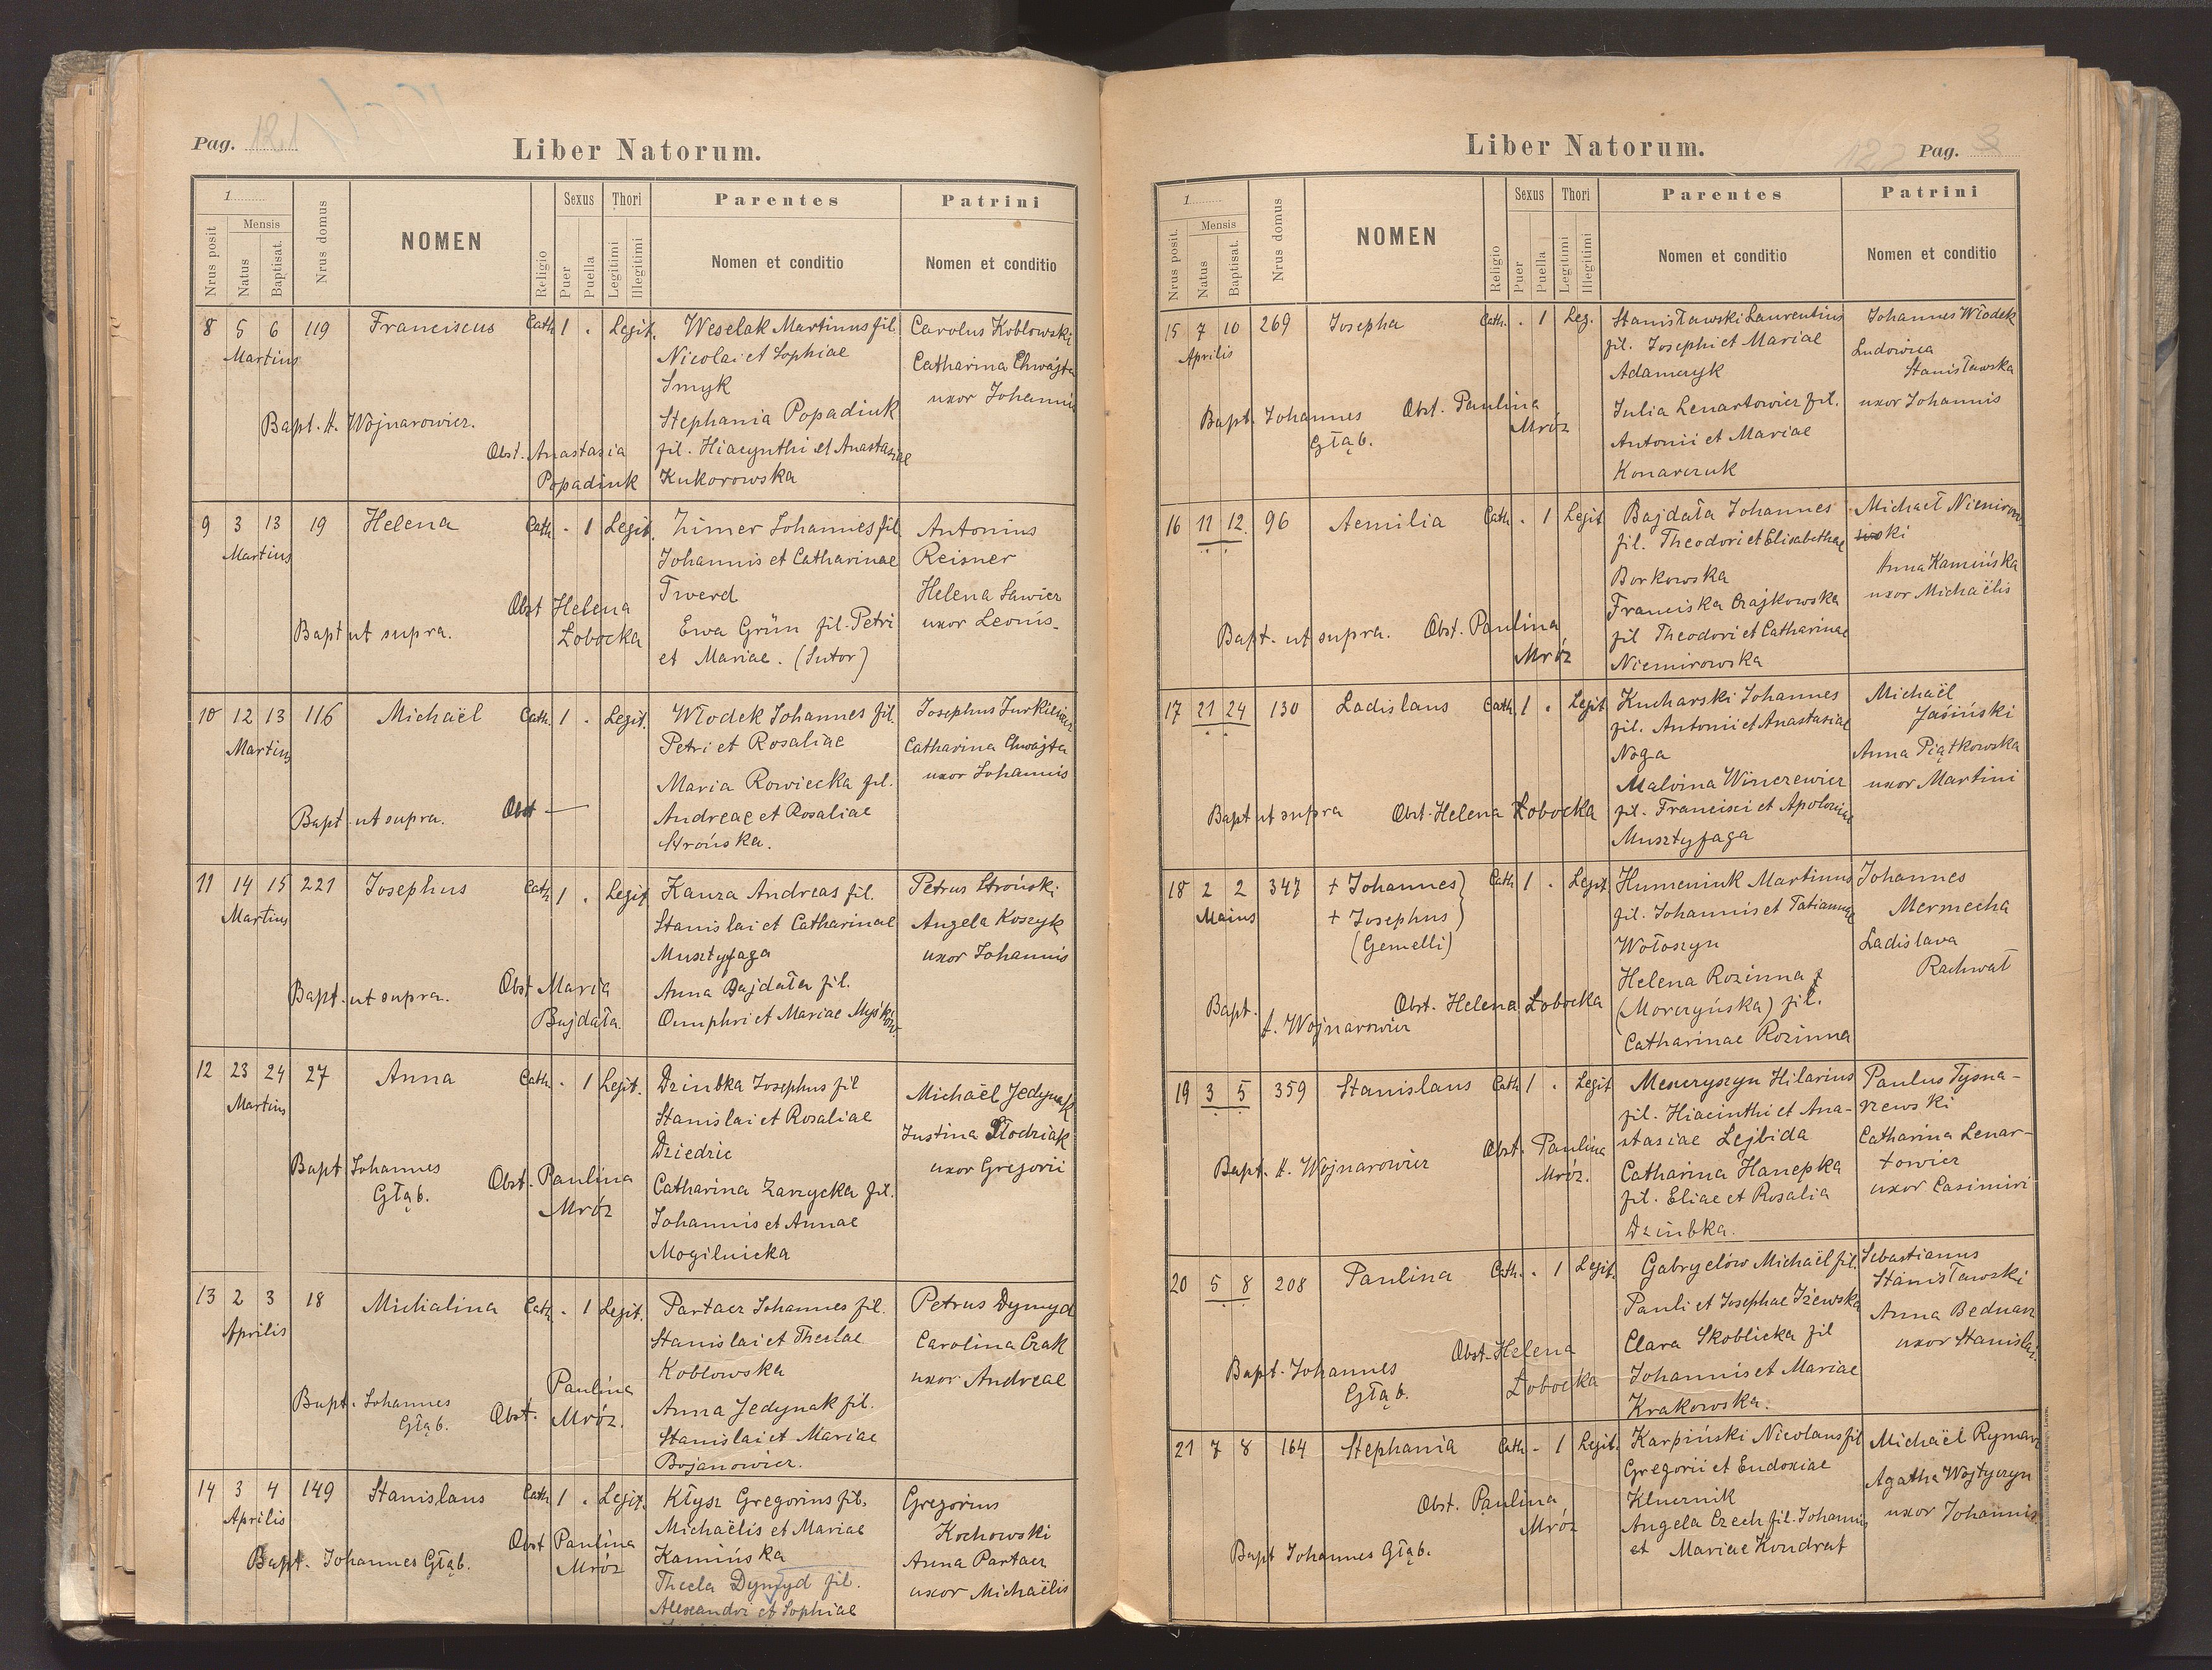 Pag. 121
Liber Natorum.
1
Nrus posit
Mensis
Natus
Baptisat.
Nrus domus
NOMEN
Religio
Sexus
Puer
Puella
Thori
Legitimi
Illegitimi
Parentes
Nomen et conditio
Patrini
Nomen et conditio
8 5 6 119 Franciscus Cath. 1 . Legit.
Martius
Bapt. A. Wojnarowicz.
Obst. Anastasia
Popadiuk
Weselak Martinus fil.
Nicolai et Sophiae
Smyk
Stephania Popadiuk
fil. Hiacynthi et Anastasiae
Kukorowska
Carolus Koblowski
Catharina Chwajta
uxor Johannis
9 3 13 19 Helena Cath - 1 Legit.
Martius
Bapt ut supra.
Obst Helena
Łobocka
Zimer Johannes fil.
Johannis et Catharinae
Twerd
Ewa Grün fil. Petri
et Mariae. (Sutor)
Antonius
Reisner
Helena Sawicz
uxor Leonis.
10 12 13 116 Michaël Cath. 1 . Legit.
Martius
Bapt ut supra.
Obst —
Włodek Johannes fil.
Petri et Rosaliae
Maria Rowiecka fil.
Andreae et Rosaliae
Strońska.
Josephus Jurkiewicz
Catharina Chwajta
uxor Johannis
11 14 15 221 Josephus Cath. 1 . Legit
Martius
Bapt. ut supra.
Obst Maria
Bajdała.
Kauza Andreas fil.
Stanislai et Catharinae
Musztyfaga
Anna Bajdała fil.
Onuphri et Mariae Myśków.
Petrus Stroński
Angela Koszyk
uxor Johannis
12 23 24 27 Anna Cath. - 1 Legit.
Martius
Bapt Johannes
Głąb.
Obst. Paulina
Mróz
Dziubka Josephus fil
Stanislai et Rosaliae
Dziedzic
Catharina Zarzycka fil.
Johannis et Annae
Mogilnicka
Michaël Jedynak
Justina Płodziak
uxor Gregorii
13 2 3 18 Michalina Cath. - 1 Legit.
Aprilis
Bapt. Johannes
Głąb.
Obst. Paulina
Mróz.
Partacz Johannes fil.
Stanislai et Theclae
Koblowska
Anna Jedynak fil.
Stanislai et Mariae
Bojanowicz.
Petrus Dymyd
Carolina Czak
uxor Andreae
14 3 4 149 Stanislaus Cath 1 . Legit.
Aprilis
Bapt. Johannes Głąb.
Obst Paulina
Mróz
Kłysz Gregorius fil.
Michaëlis et Mariae
Kamińska
Thecla Dymyd fil.
Alexandri et Sophiae
Gregorius
Kochowski
Anna Partacz
uxor Michaëlis
Liber Natorum.
122 Pag. 3
1
Nrus posit.
Mensis
Natus
Baptisat.
Nrus domus
NOMEN
Religio
Sexus
Puer
Puella
Thori
Legitimi
Illegitimi
Parentes
Nomen et conditio
Patrini
Nomen et conditio
15 7 10 269 Josepha Cath. . 1 Leg.
Aprilis
Bapt. Johannes
Głąb.
Obst. Paulina
Mróz
Stanisławski Laurentius
fil. Josephi et Mariae
Adamczyk
Julia Lenartowicz fil.
Antonii et Mariae
Konarczuk
Johannes Włodek
Ludovica
Stanisławska
uxor Johannis
16 11 12 96 Aemilia Cath. . 1 Legit
Bapt. ut supra.
Obst. Paulina
Mróz
Bajdała Johannes
fil. Theodori et Elisabethae
Borkowska
Franciska Czajkowska
fil Theodori et Catharinae
Niemirowska
Michael Niemirow
ski
Anna Kamińska
uxor Michaëlis
17 21 24 130 Ladislaus Cath. 1 . Legit
Bapt ut supra
Obst. Helena Łobocka
Kucharski Johannes
fil. Antonii et Anastasiae
Noga
Malvina Winczewicz
fil. Francisci et Apoloniae
Musztyfaga
Michaël
Jaśiński
Anna Piątkowska
uxor Martini
18 2 2 347 + Johannes } Cath 1 . Legit
Maius + Josephus }
(Gemelli)
Bapt.
A. Wojnarowicz
Obst. Helena Łobocka
Humeniuk Martinus
fil. Johannis et Tatiannae
Wołoszyn
Helena Rozinna
(Morczyńska) fil.
Catharinae Rozinna
Johannes
Mermecha
Ladislava
Rachwał
19 3 5 359 Stanislaus Cath 1 . Legit
Bapt. A. Wojnarowicz
Obst. Paulina
Mróz.
Meszczyszyn Hilarius
fil. Hiacinthi et Ana-
stasiae Lejbida
Catharina Hanepka
fil. Eliae et Rosalia
Dziubka.
Paulus Tysna-
rzewski
Catharina Lenar-
towicz
uxor Casimiri
20 5 8 208 Paulina Cath. . 1 Legit.
Bapt. Johannes
Głąb.
Obst. Helena
Łobocka
Gabryelów Michaël fil.
Pauli et Josephae Iżewska
Clara Skoblicka fil
Johannis et Mariae
Krakowska.
Sebastianus
Stanisławski
Anna Bednarz
uxor Stanislai.
21 7 8 164 Stephania Cath - 1 Legit.
Bapt Johannes Głąb.
Obst. Paulina
Mróz
Karpiński Nicolaus fil
Gregorii et Eudoxiae
Klucznik
Angela Czech fil. Johannis
et Mariae Kondrat
Michaël Rymarz
Agatha Wojtyczyn
uxor Johannis.